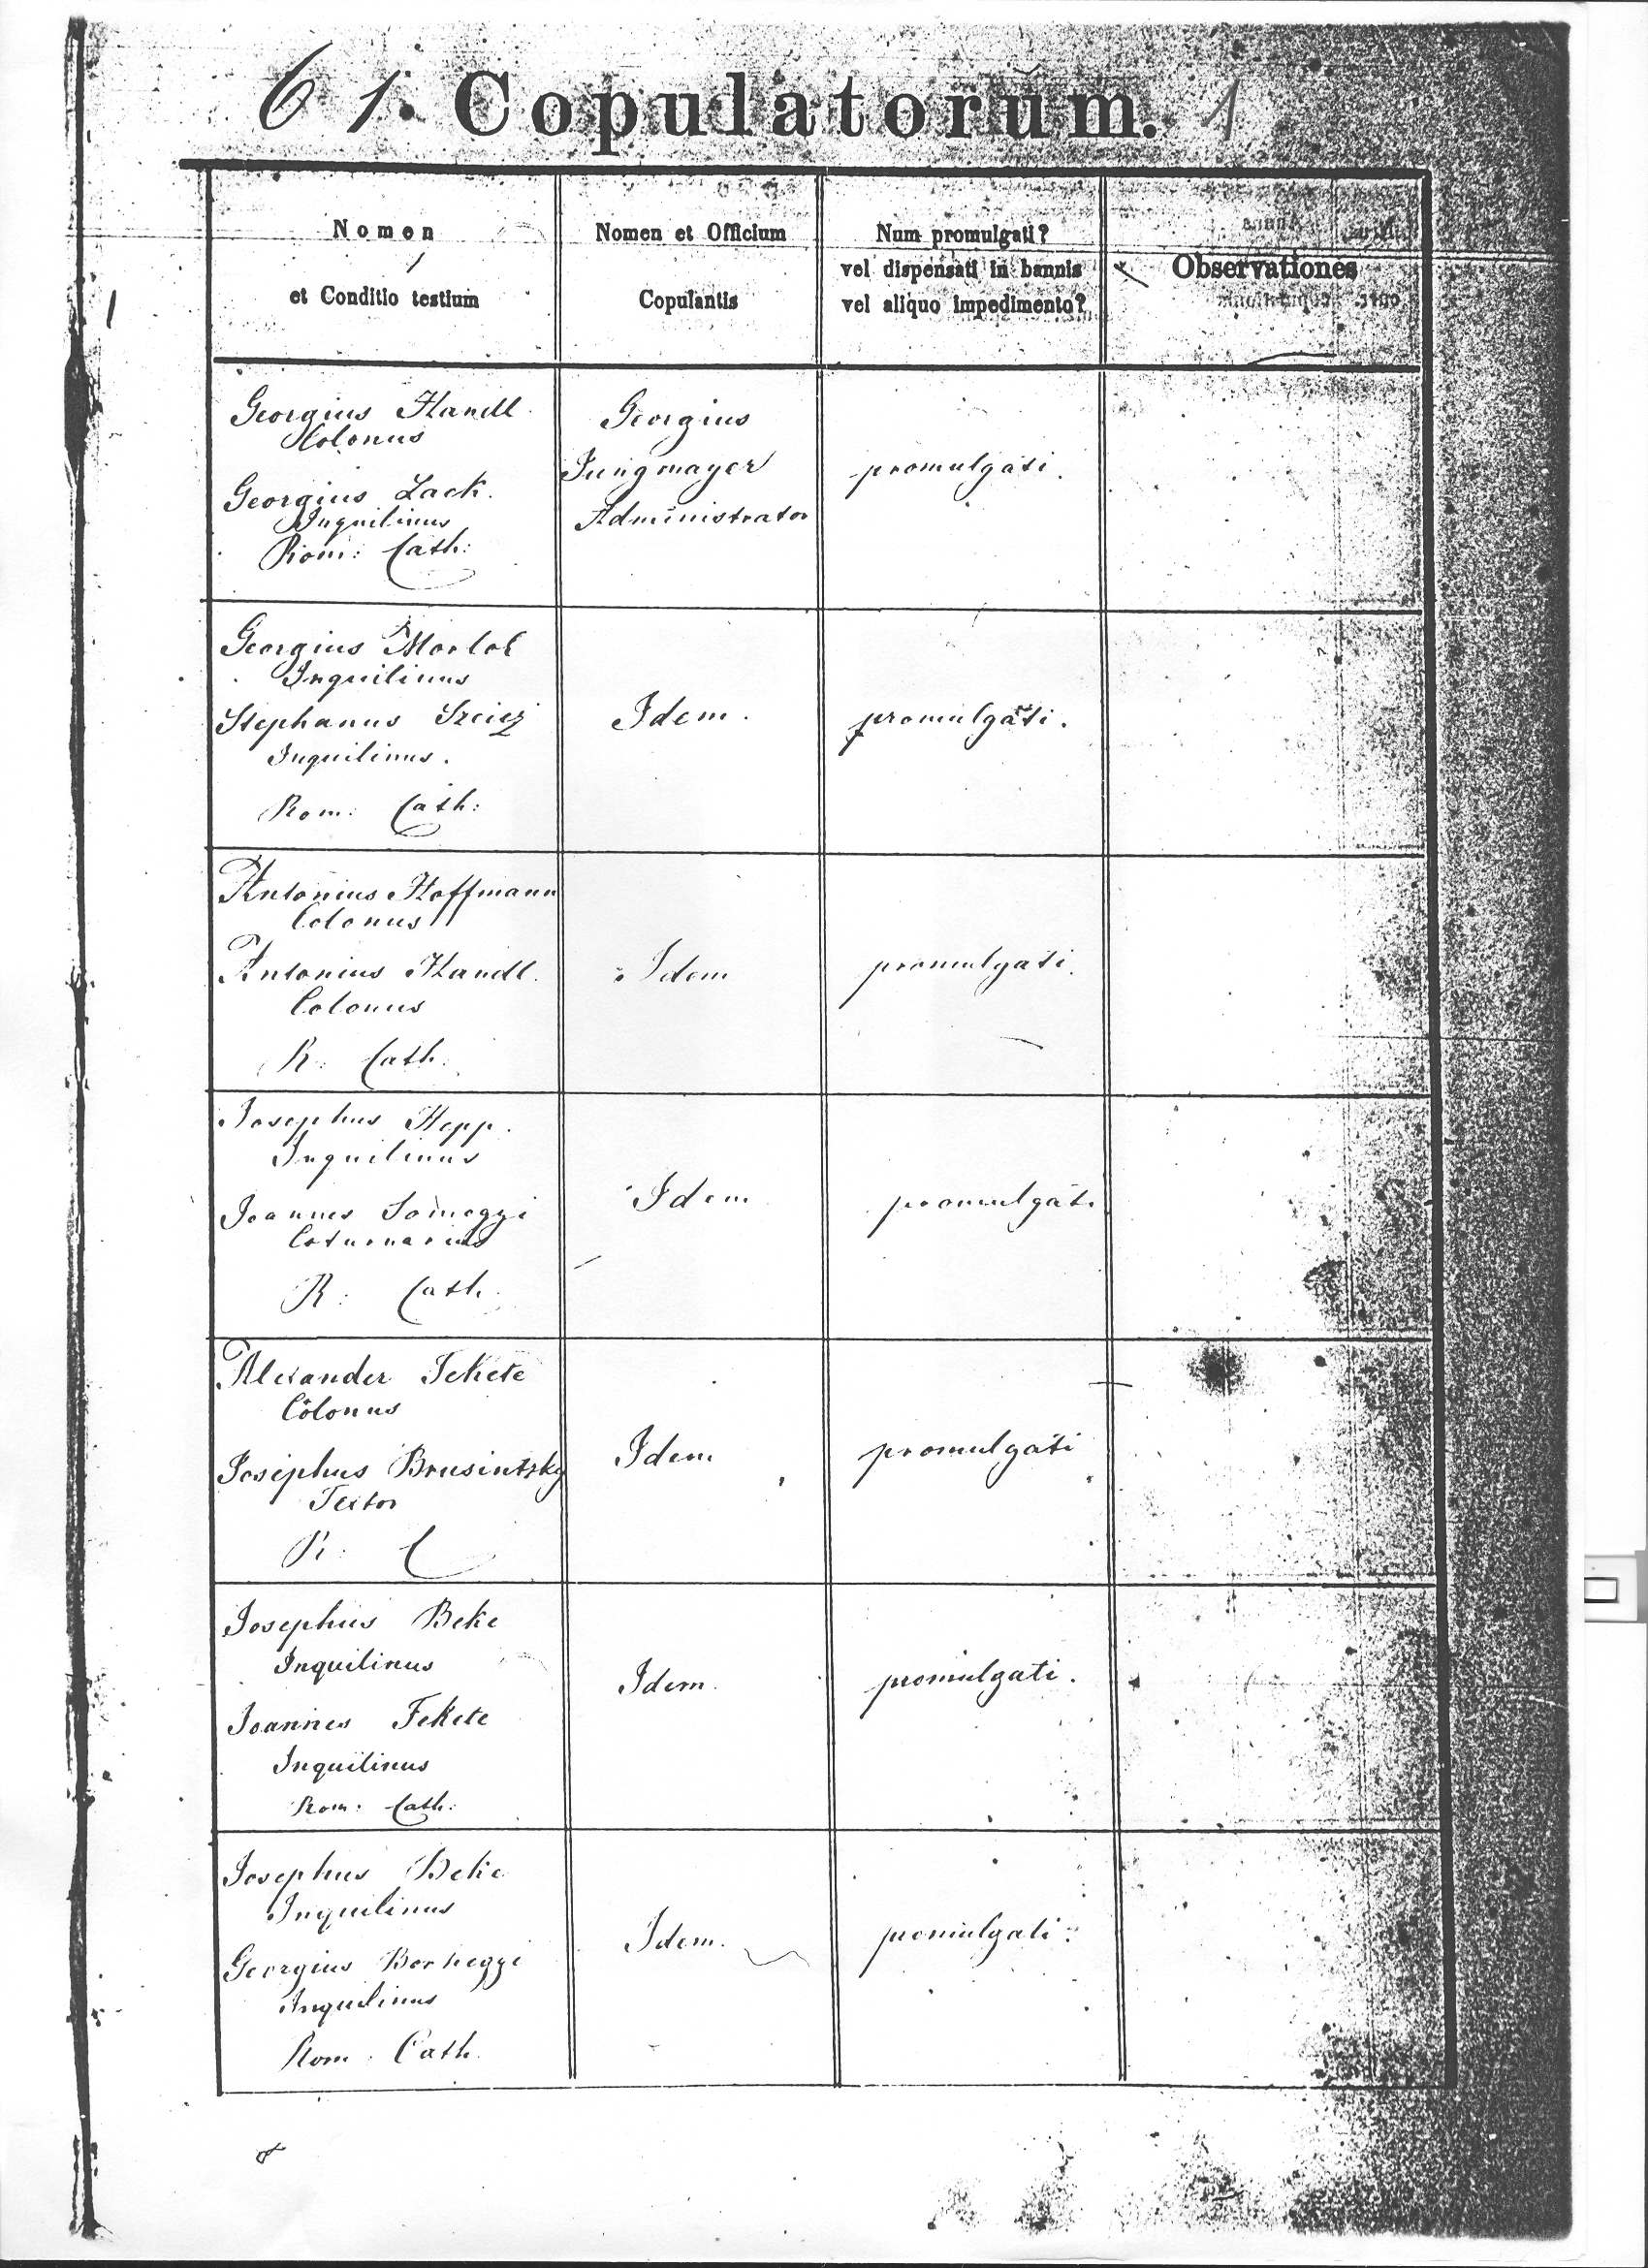 61. Copulatorum. 1
Nomen
et Conditio testium
Nomen et Officium
Copulantis
Num promulgati?
vel dispensati in bannis
vel aliquo impedimento?
Observationes
Georgius Handl
Colonus
Georgius Lack.
Inquilinus
Rom: Cath:
Georgius
Jungmayer
Administrator
promulgati.
Georgius
Inquilinus
Stephanus
Inquilinus.
Rom: Cath:
Idem.
promulgati.
Antonius Hoffmann
Colonus
Antonius Handl.
Colonus
R: Cath:
Idem
promulgati.
Josephus Hepp.
Inquilinus
Joannes Somogyi
Coturnarius
R: Cath.
Idem
promulgati
Alexander Fekete
Colonus
Josephus Brusintzky
Textor
R: C
Idem
promulgati
Josephus Beke
Inquilinus
Joannes Fekete
Inquilinus
Rom: Cath:
Idem.
promulgati.
Josephus Beke
Inquilinus
Georgius Borhegyi
Inquilinus
Rom. Cath.
Idem.
promulgati.